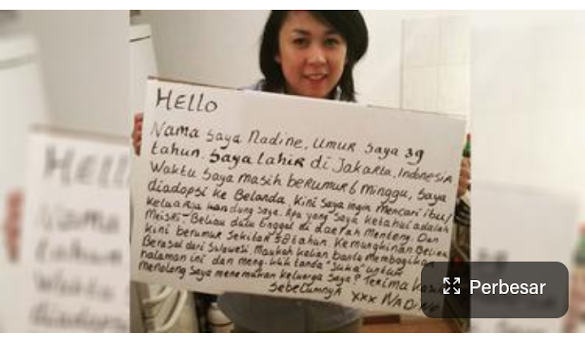 HELLO
Nama saya Nadine, umur saya 39
tahun. saya lahir di Jakarta, Indonesia
Waktu saya masih berumur 6 minggu, saya
diadopsi ke Belanda, kini saya ingin mencari ibu/
keluarga kandung saya. Apa yang saya ketahui adalah
Meiske- Beliau dulu tinggal di daerah Menteng. Dan
kini berumur sekitar 58 tahun. Kemungkinan Beliau
Berasal dari Sulawesi Maukah kalian bantu Membagikan
halaman ini dan meng-klik tanda "suka" untuk
Menolong saya menemukan keluarga saya? Terima kasih
sebelumnya xxx
Perbesar